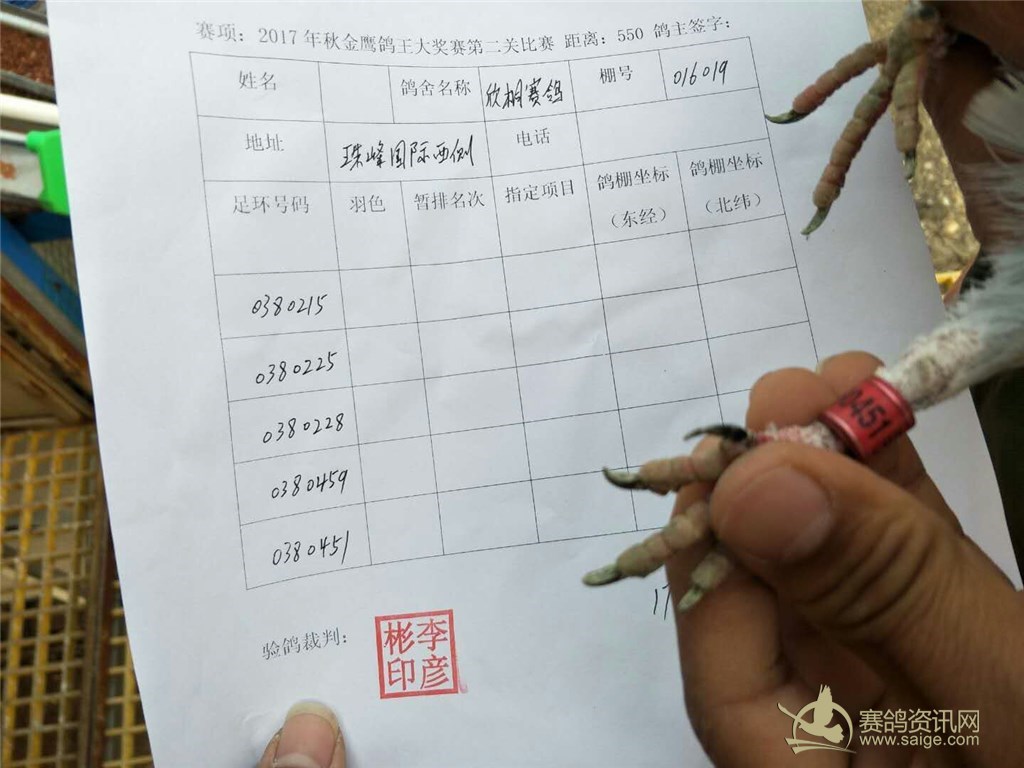 赛项：2017年秋金鹰鸽王大奖赛第二关比赛 距离：550 鸽主签字：
姓名 鸽舍名称 欣桐赛鸽 棚号 016019
地址 珠峰国际西侧 电话
足环号码 羽色 暂排名次 指定项目 鸽棚坐标（东经） 鸽棚坐标（北纬）
0380215
0380225
0380228
0380459
0380451
验鸽裁判：
李彦彬印
17
0451
赛鸽资讯网
www.saige.com